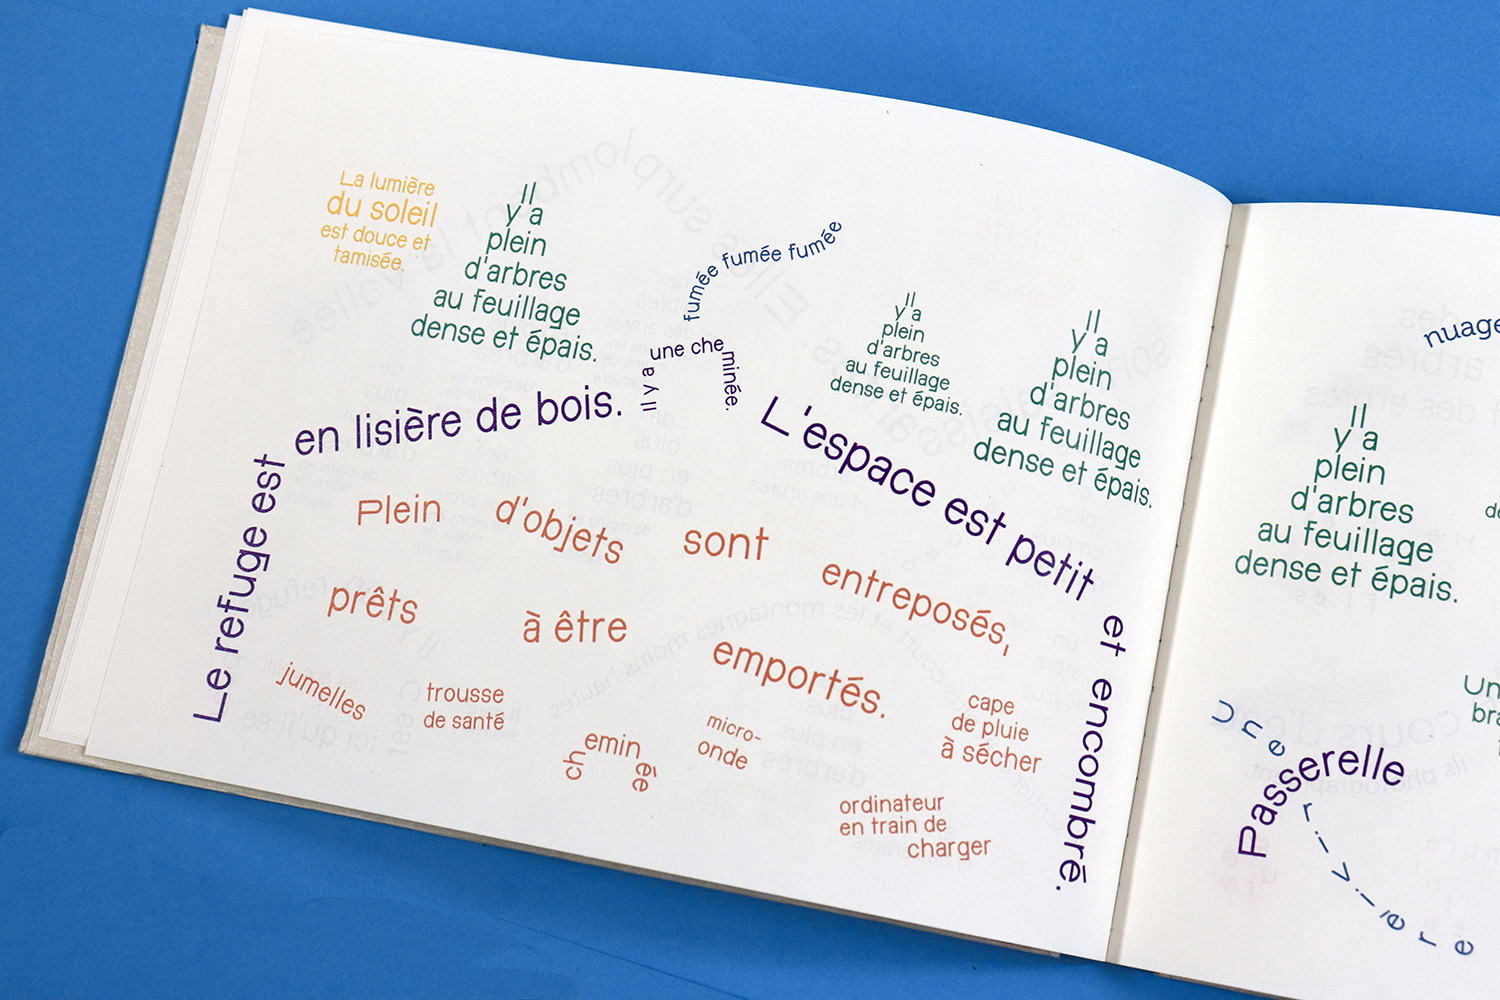 La lumière
du soleil
est douce et
tamisée.
Il
y a
plein
d'arbres
au feuillage
dense et épais.
fumée fumée fumée
Il y a une cheminée.
Il
y a
plein
d'arbres
au feuillage
dense et épais.
Il
y a
plein
d'arbres
au feuillage
dense et épais.
Le refuge est en lisière de bois.
L'espace est petit et encombré.
Plein d'objets sont entreposés,
prêts à être emportés.
jumelles
trousse
de santé
cheminée
micro-
onde
cape
de pluie
à sécher
ordinateur
en train de
charger
Il
y a
plein
d'arbres
au feuillage
dense et épais.
Passerelle
Une rivière